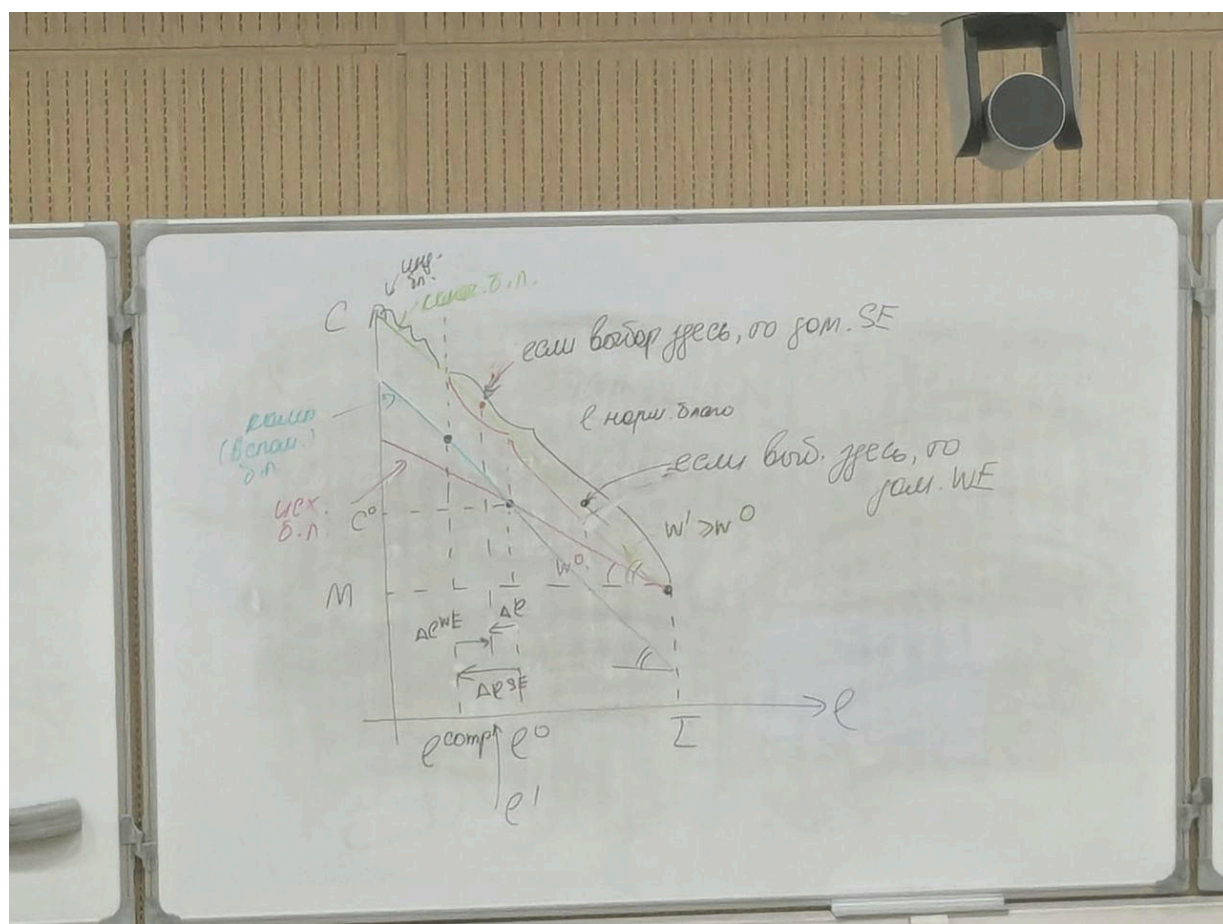 C
кон. б.л.
если выбор здесь, то дом. SE
l норм. благо
комп
(вспом.)
б.л.
если выб. здесь, то
дом. WE
исх.
б.л.
C⁰
w' > w⁰
w⁰
M
Δl^WE
Δl
Δl^SE
l
l^comp
l⁰
L
l'